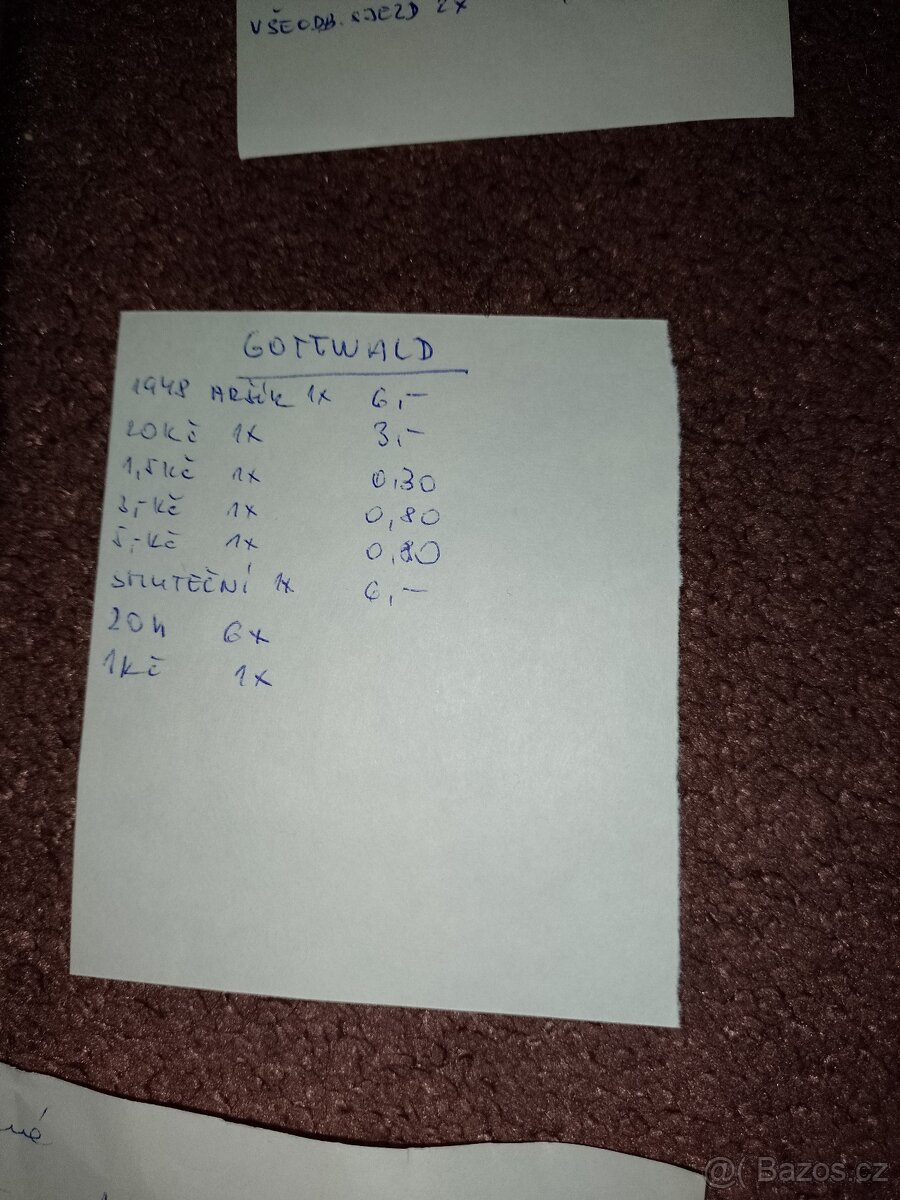 VŠEODB. SJEZD 2x
GOTTWALD
1948 ARŠÍK 1x 6,-
20Kč 1x 3,-
1,5Kč 1x 0,30
3,-Kč 1x 0,80
5,-Kč 1x 0,80
SMUTEČNÍ 1x 6,-
20h 6x
1Kč 1x
@( Bazos.cz